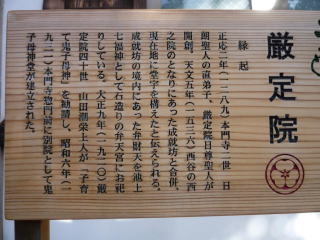 厳定院
縁起
正応二年（一二八九）本門寺二世 日
朗聖人の直弟子、厳定院日尊聖人が
開創。天文五年（一五三六）西谷の西
之院のとなりにあった成就坊と合併、
現在地に堂宇を構えたと伝えられる。
成就坊の境内にあった弁財天を池上
七福神として石造りの弁天宮にお祀
りしている。大正九年（一九二〇）厳
定院四十世 山田潮栄上人が「子育
て鬼子母神」を勧請し、昭和六年（一
九三一）本門寺惣門前に別院として鬼
子母神堂が建立された。